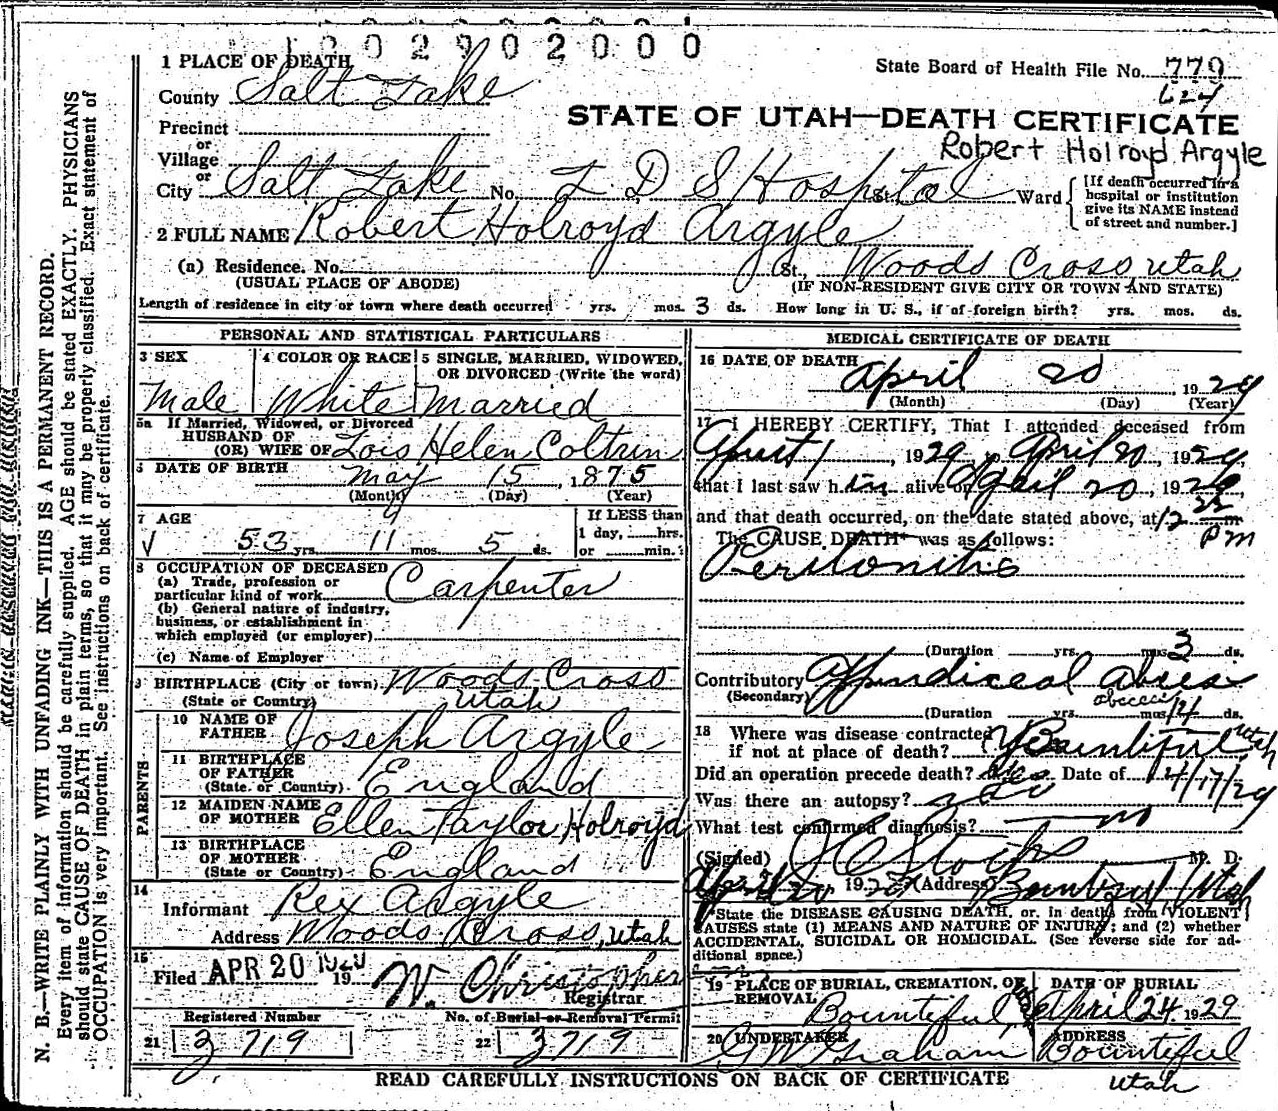 0 0 2 9 0 2 0 0 0
1 PLACE OF DEATH
State Board of Health File No. 779
624
County Salt Lake
STATE OF UTAH—DEATH CERTIFICATE
Precinct
Robert Holroyd Argyle
or
Village
or
City Salt Lake No. L D S Hospital Ward
[If death occurred in a
hospital or institution
give its NAME instead
of street and number.]
2 FULL NAME Robert Holroyd Argyle
(a) Residence. No. St., Woods Cross Utah
(USUAL PLACE OF ABODE) (IF NON-RESIDENT GIVE CITY OR TOWN AND STATE)
Length of residence in city or town where death occurred yrs. mos. 3 ds. How long in U. S., if of foreign birth? yrs. mos. ds.
PERSONAL AND STATISTICAL PARTICULARS
3 SEX
Male
4 COLOR OR RACE
White
5 SINGLE, MARRIED, WIDOWED,
OR DIVORCED (Write the word)
Married
5a If Married, Widowed, or Divorced
HUSBAND OF
(OR) WIFE OF Lois Helen Coltrin
6 DATE OF BIRTH May 15, 1875
(Month) (Day) (Year)
7 AGE
53 yrs. 11 mos. 5 ds.
If LESS than
1 day, hrs.
or min.
8 OCCUPATION OF DECEASED
(a) Trade, profession or
particular kind of work Carpenter
(b) General nature of industry,
business, or establishment in
which employed (or employer)
(c) Name of Employer
9 BIRTHPLACE (City or town) Woods Cross
(State or Country) Utah
PARENTS
10 NAME OF
FATHER Joseph Argyle
11 BIRTHPLACE
OF FATHER
(State or Country) England
12 MAIDEN NAME
OF MOTHER Ellen Taylor Holroyd
13 BIRTHPLACE
OF MOTHER
(State or Country) England
14
Informant Rex Argyle
Address Woods Cross, Utah
15
Filed APR 20 1929 19 W. Christopher
Registrar
Registered Number
No. of Burial or Removal Permit
21 3719
22 3719
MEDICAL CERTIFICATE OF DEATH
16 DATE OF DEATH
April 20 1929
(Month) (Day) (Year)
17 I HEREBY CERTIFY, That I attended deceased from
1929, to April 20, 1929,
that I last saw h im alive on April 20, 1929
and that death occurred, on the date stated above, at 12 22 m
Pm
The CAUSE DEATH* was as follows:
Peritonitis
(Duration yrs. mos. 3 ds.
Contributory Appendiceal Abscess
(Secondary)
abscess
(Duration yrs. mos. 14 ds.
18 Where was disease contracted
if not at place of death? Bountiful Utah
Did an operation precede death? Yes Date of 4/17/29
Was there an autopsy? no
What test confirmed diagnosis? no
(Signed) M. D.
April 20 1929 (Address) Bountiful, Utah
*State the DISEASE CAUSING DEATH, or, in deaths from VIOLENT
CAUSES state (1) MEANS AND NATURE OF INJURY; and (2) whether
ACCIDENTAL, SUICIDAL OR HOMICIDAL. (See reverse side for ad-
ditional space.)
19 PLACE OF BURIAL, CREMATION, OR
REMOVAL
Bountiful,
DATE OF BURIAL
April 24 1929
20 UNDERTAKER
Graham
ADDRESS
Bountiful
Utah
READ CAREFULLY INSTRUCTIONS ON BACK OF CERTIFICATE
N. B.—WRITE PLAINLY WITH UNFADING INK—THIS IS A PERMANENT RECORD.
Every item of information should be carefully supplied. AGE should be stated EXACTLY. PHYSICIANS
should state CAUSE OF DEATH in plain terms, so that it may be properly classified. Exact statement of
OCCUPATION is very important. See instructions on back of certificate.